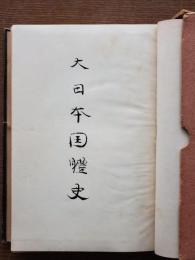 大日本国体史